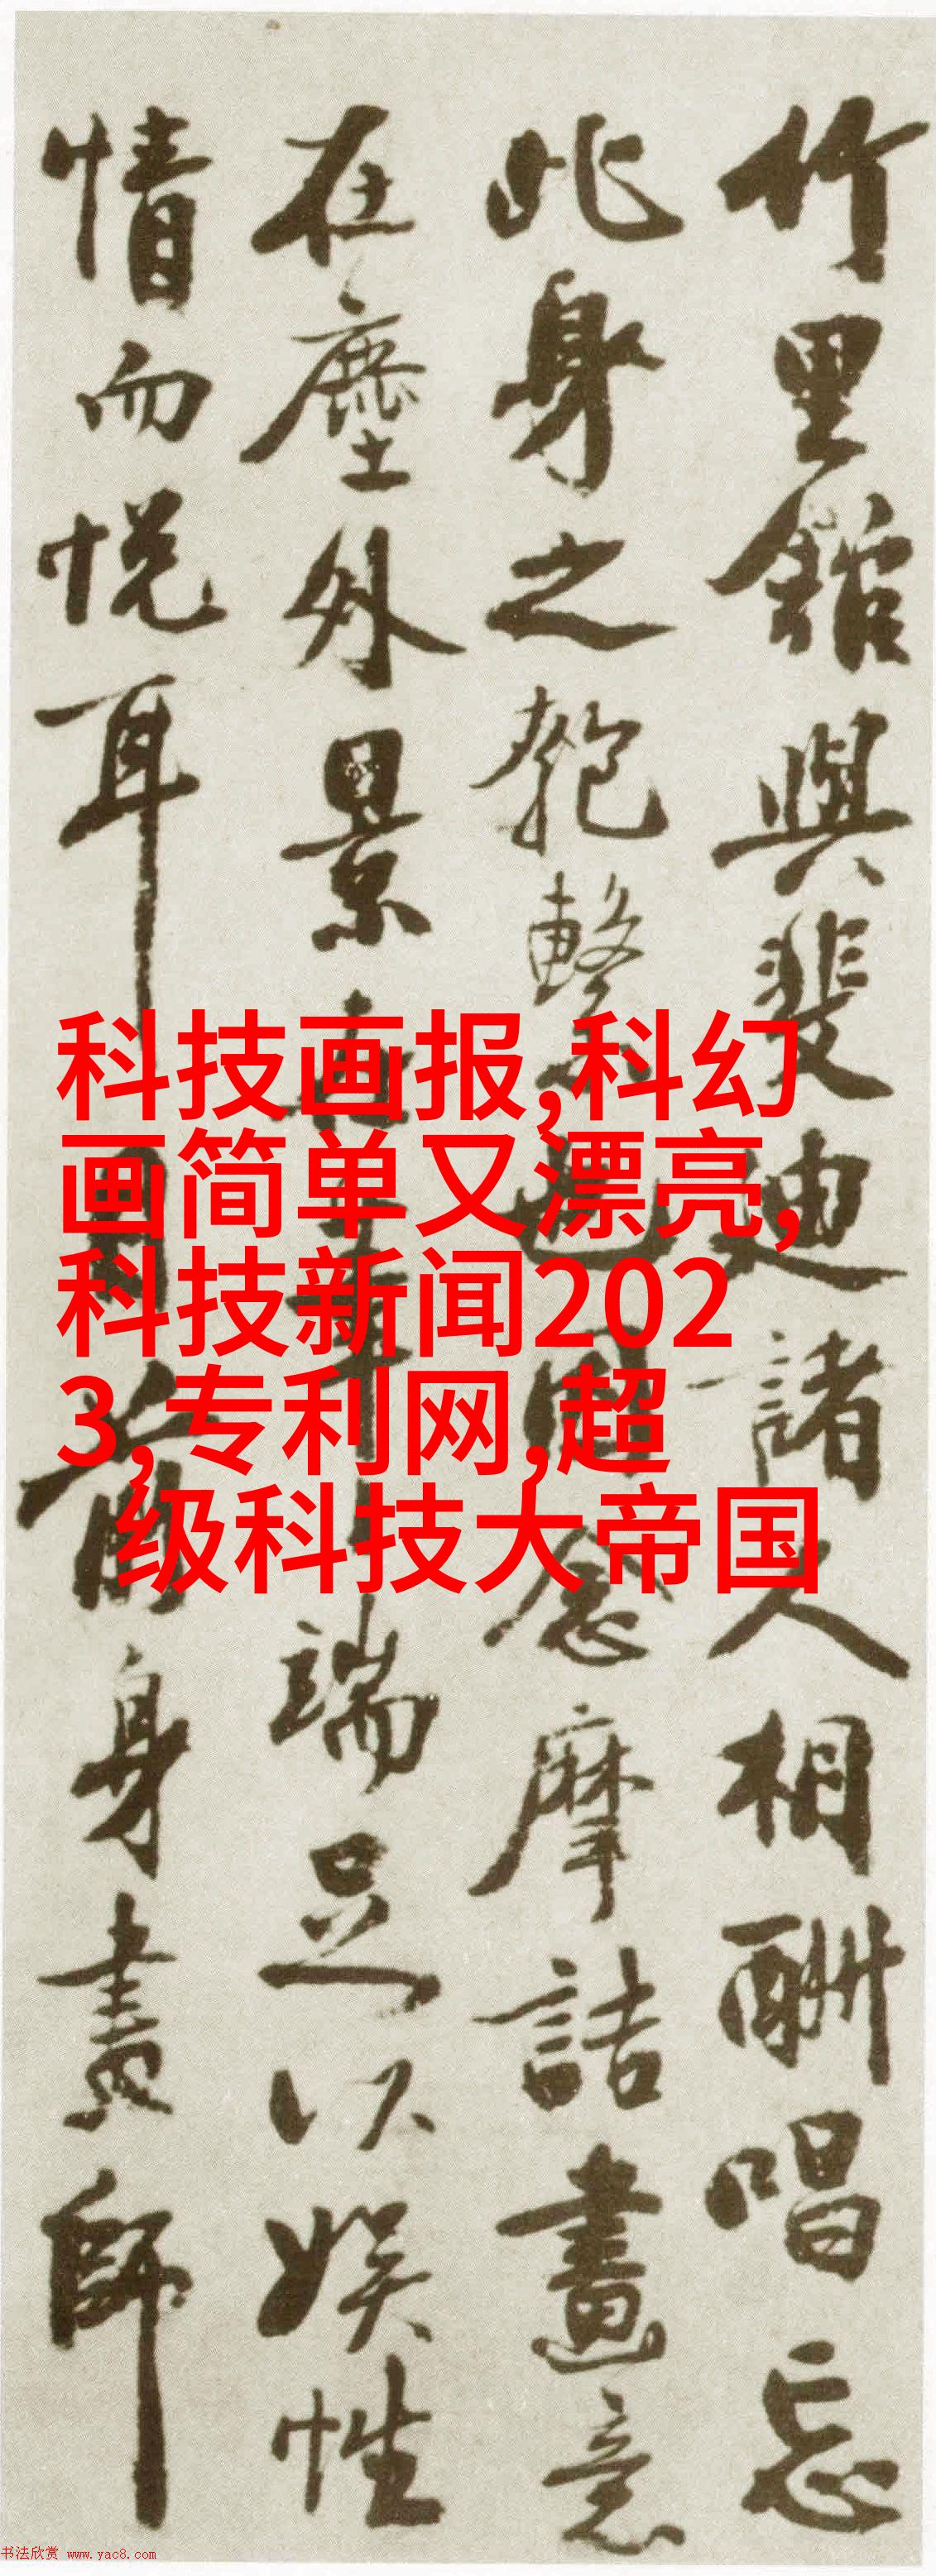 竹里館與裴迪諸人相酬唱忘
此身之匏繫也因念摩詰畫意
在塵外景在筆端足以娛性
情而悅耳目前身畫師
科技画报,科幻
画简单又漂亮,
科技新闻202
3,专利网,超
级科技大帝国
书法欣赏 www.yac8.com